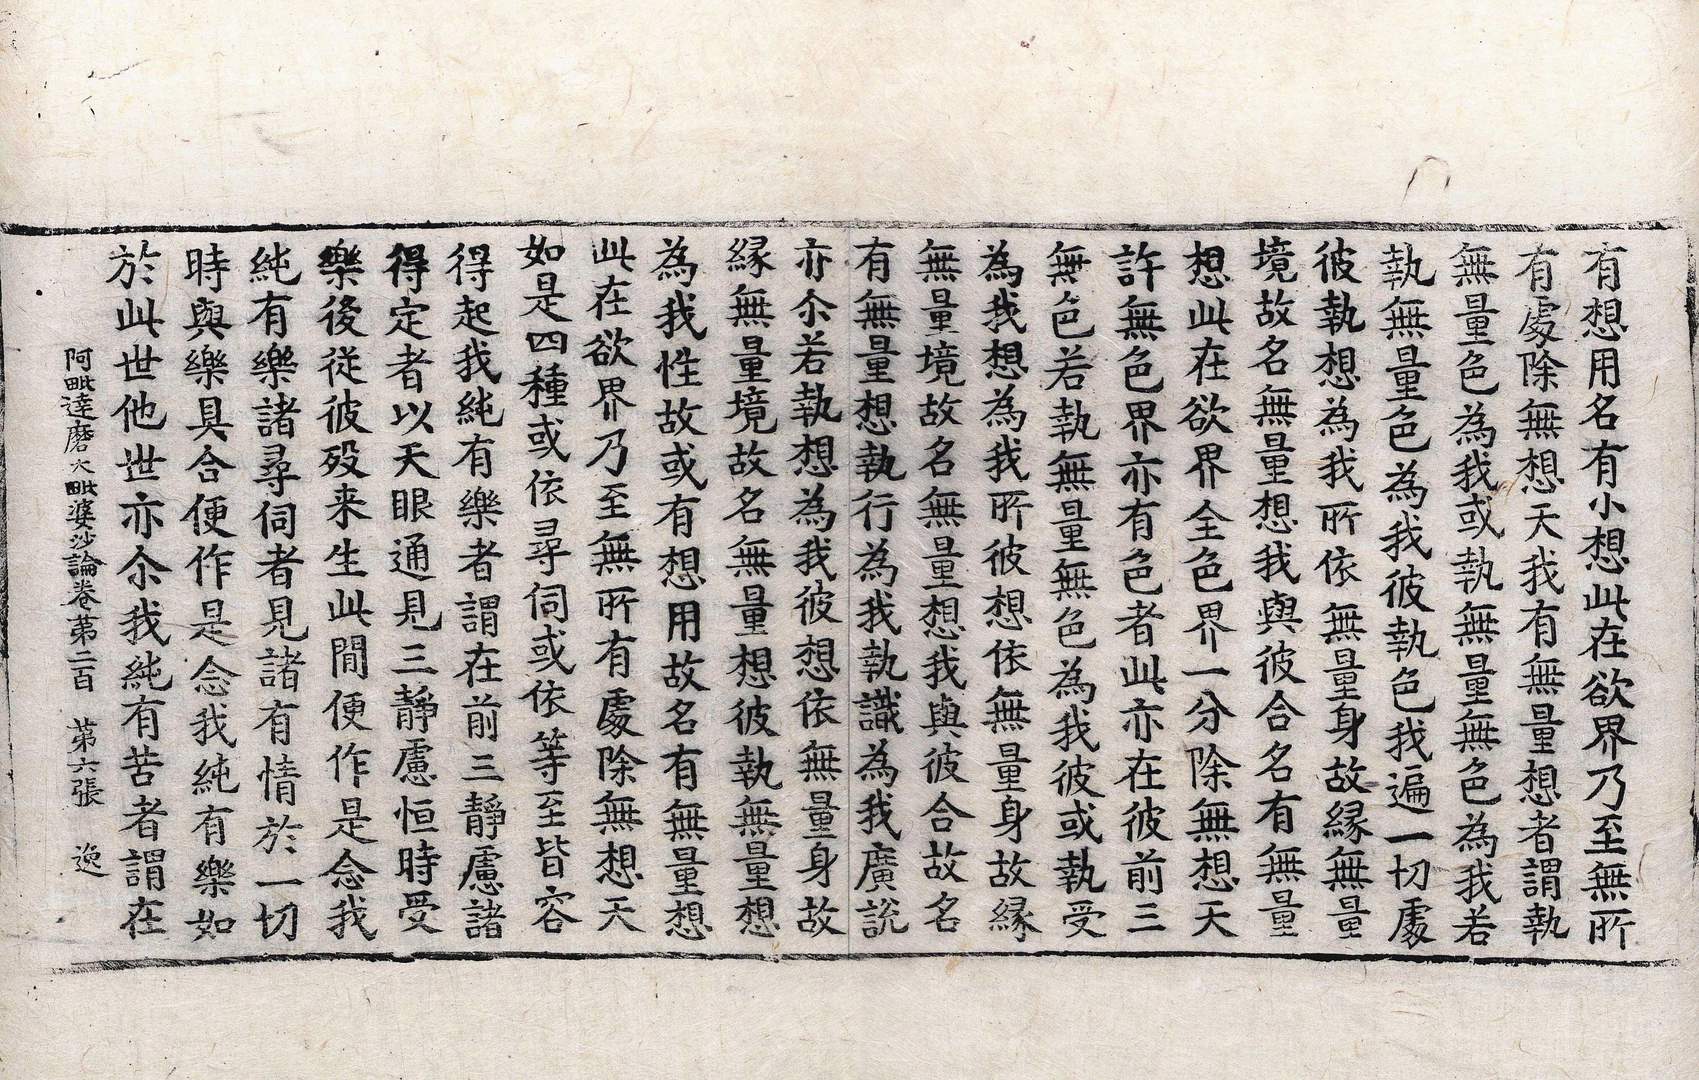 有想用名有小想此在欲界乃至無所
有處除無想天我有無量想者謂執
無量色為我或執無量無色為我若
執無量色為我彼執色我遍一切處
彼執想為我所依無量身故縁無量
境故名無量想我與彼合名有無量
想此在欲界全色界一分除無想天
許無色界亦有色者此亦在彼前三
無色若執無量無色為我彼或執受
為我想為我所彼想依無量身故縁
無量境故名無量想我與彼合故名
有無量想執行為我執識為我廣說
亦尒若執想為我彼想依無量身故
縁無量境故名無量想彼執無量想
為我性故或有想用故名有無量想
此在欲界乃至無所有處除無想天
如是四種或依尋伺或依等至皆容
得起我純有樂者謂在前三靜慮諸
得定者以天眼通見三靜慮恒時受
樂後従彼歿来生此間便作是念我
純有樂諸尋伺者見諸有情於一切
時與樂具合便作是念我純有樂如
於此世他世亦尒我純有苦者謂在
阿毗達磨大毗婆沙論卷第二百　第六張　逸